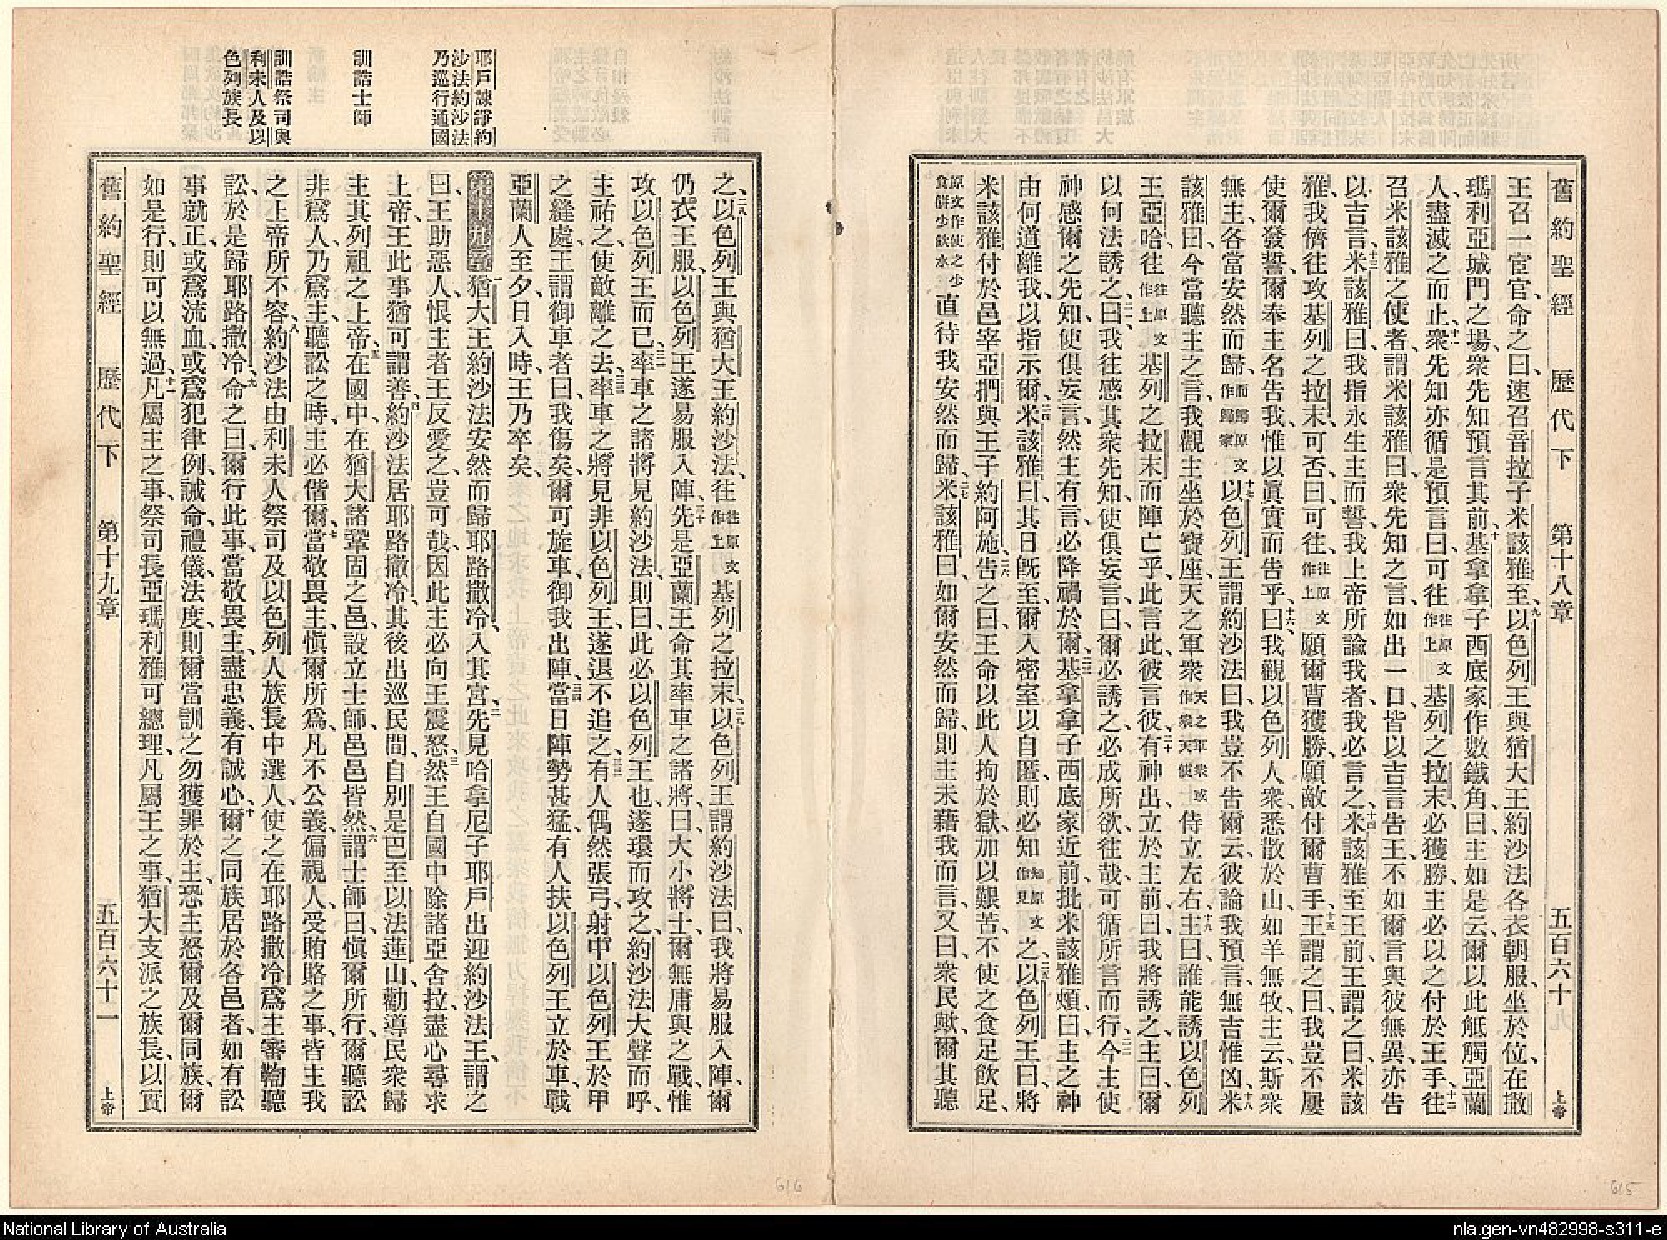 舊約聖經 歷代下 第十八章 五百六十九 上帝
王召一宦官、命之曰、速召音拉子米該雅至、九以色列王與猶大王約沙法各衣朝服、坐於位、在撒
瑪利亞城門之場、衆先知預言其前、十基拿拿子西底家作數鐵角曰、主如是云、爾以此觝觸亞蘭
人、盡滅之而止、十一衆先知亦循是預言曰、可往往原文作上基列之拉末、必獲勝、主必以之付於王手、十二往
召米該雅之使者、謂米該雅曰、衆先知之言、如出一口、皆以吉言告王、不如爾言與彼無異、亦告
以吉言、十三米該雅曰、我指永生主而誓、我上帝所諭我者、我必言之、十四米該雅至王前、王謂之曰、米該
雅、我儕往攻基列之拉末可否、曰、可往往原文作上願爾曹獲勝、願敵付爾曹手、十五王謂之曰、我豈不屢
使爾發誓、爾奉主名告我、惟以眞實而告乎、十六曰、我觀以色列人衆悉散於山、如羊無牧、主云、斯衆
無主、各當安然而歸而歸原文作歸家十七以色列王謂約沙法曰、我豈不告爾云、彼論我預言、無吉惟凶、十八米
該雅曰、今當聽主之言、我觀主坐於寶座、天之軍衆天之軍衆或作衆天使侍立左右、十九主曰、誰能誘以色列
王亞哈、往往原文作上基列之拉末而陣亡乎、此言此、彼言彼、二十有神出立於主前曰、我將誘之、主曰、爾
以何法誘之、二一曰、我往感其衆先知、使俱妄言、曰、爾必誘之、必成所欲、往哉、可循所言而行、二二今主使
神感爾之先知、使俱妄言、然主有言、必降禍於爾、二三基拿拿子西底家近前、批米該雅頰曰、主之神
由何道離我、以指示爾、二四米該雅曰、其日旣至、爾入密室以自匿、則必知知原文作見之、二五以色列王曰、將
米該雅付於邑宰亞捫、與王子約阿施、二六告之曰、王命以此人拘於獄、加以艱苦、不使之食足飲足、
原文作使之少食餅少飲水直待我安然而歸、二七米該雅曰、如爾安然而歸、則主未藉我而言、又曰、衆民歟、爾其聽
615
耶戶諫諍約
沙法約沙法
乃巡行通國
訓誥士師
訓誥祭司與
利未人及以
色列族長
之、二八以色列王與猶大王約沙法、往往原文作上基列之拉末、二九以色列王謂約沙法曰、我將易服入陣、爾
仍衣王服、以色列王遂易服入陣、三十先是亞蘭王命其率車之諸將曰、大小將士、爾無庸與之戰、惟
攻以色列王而已、三一率車之諸將見約沙法、則曰、此必以色列王也、遂環而攻之、約沙法大聲而呼、
主祐之、使敵離之去、三二率車之將見非以色列王、遂退不追之、三三有人偶然張弓、射中以色列王於甲
之縫處、王謂御車者曰、我傷矣、爾可旋車、御我出陣、三四當日陣勢甚猛、有人扶以色列王立於車、戰
亞蘭人至夕、日入時、王乃卒矣、
第十九章一猶大王約沙法安然而歸耶路撒冷、入其宮、二先見哈拿尼子耶戶出迎約沙法王、謂之
曰、王助惡人、恨主者王反愛之、豈可哉、因此主必向王震怒、三然王自國中除諸亞舍拉、盡心尋求
上帝、王此事猶可謂善、四約沙法居耶路撒冷、其後出巡民間、自別是巴至以法蓮山、勸導民衆歸
主其列祖之上帝、五在國中、在猶大諸鞏固之邑、設立士師、邑邑皆然、六謂士師曰、愼爾所行、爾聽訟
非爲人、乃爲主、聽訟之時、主必偕爾、七當敬畏主、愼爾所爲、凡不公義、偏視人、受賄賂之事、皆主我
之上帝所不容、八約沙法由利未人祭司及以色列人族長中選人、使之在耶路撒冷爲主審鞫聽
訟、於是歸耶路撒冷、九命之曰、爾行此事、當敬畏主、盡忠義、有誠心、十爾之同族居於各邑者、如有訟
事就正、或爲流血、或爲犯律例、誡命、禮儀、法度、則爾當訓之、勿獲罪於主、恐主怒爾及爾同族、爾
如是行、則可以無過、十一凡屬主之事、祭司長亞瑪利雅可總理、凡屬王之事、猶大支派之族長、以實
舊約聖經 歷代下 第十九章 五百六十一 上帝
616
National Library of Australia
nla.gen-vn482998-s311-e